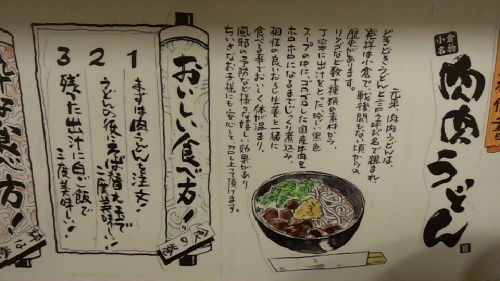 小倉
名物
肉肉うどん
元来、肉肉うどんは、
どきどきうどんと言う呼び名で親まれ
発祥は小倉で、戦後間もない頃からの
歴史があります。
リングなど数種類の素材から、
丁寧に出汁をとった珍しい黒色
スープの中に、ゴロゴロした国産牛肉を
ホロホロになるまでじっくり煮込み、
相性の良いおろし生姜と一緒に
食べる事でおいしく体が温まり、
風邪の予防など様々な嬉しい効果があり
ちいさなお子様にも安心して召し上って頂けます。
おいしい食べ方!!
1 まずは肉うどんを注文!
2 うどんの後、そば替え玉で
二度美味しい!
3 残った出汁に白ご飯で
三度美味しい!